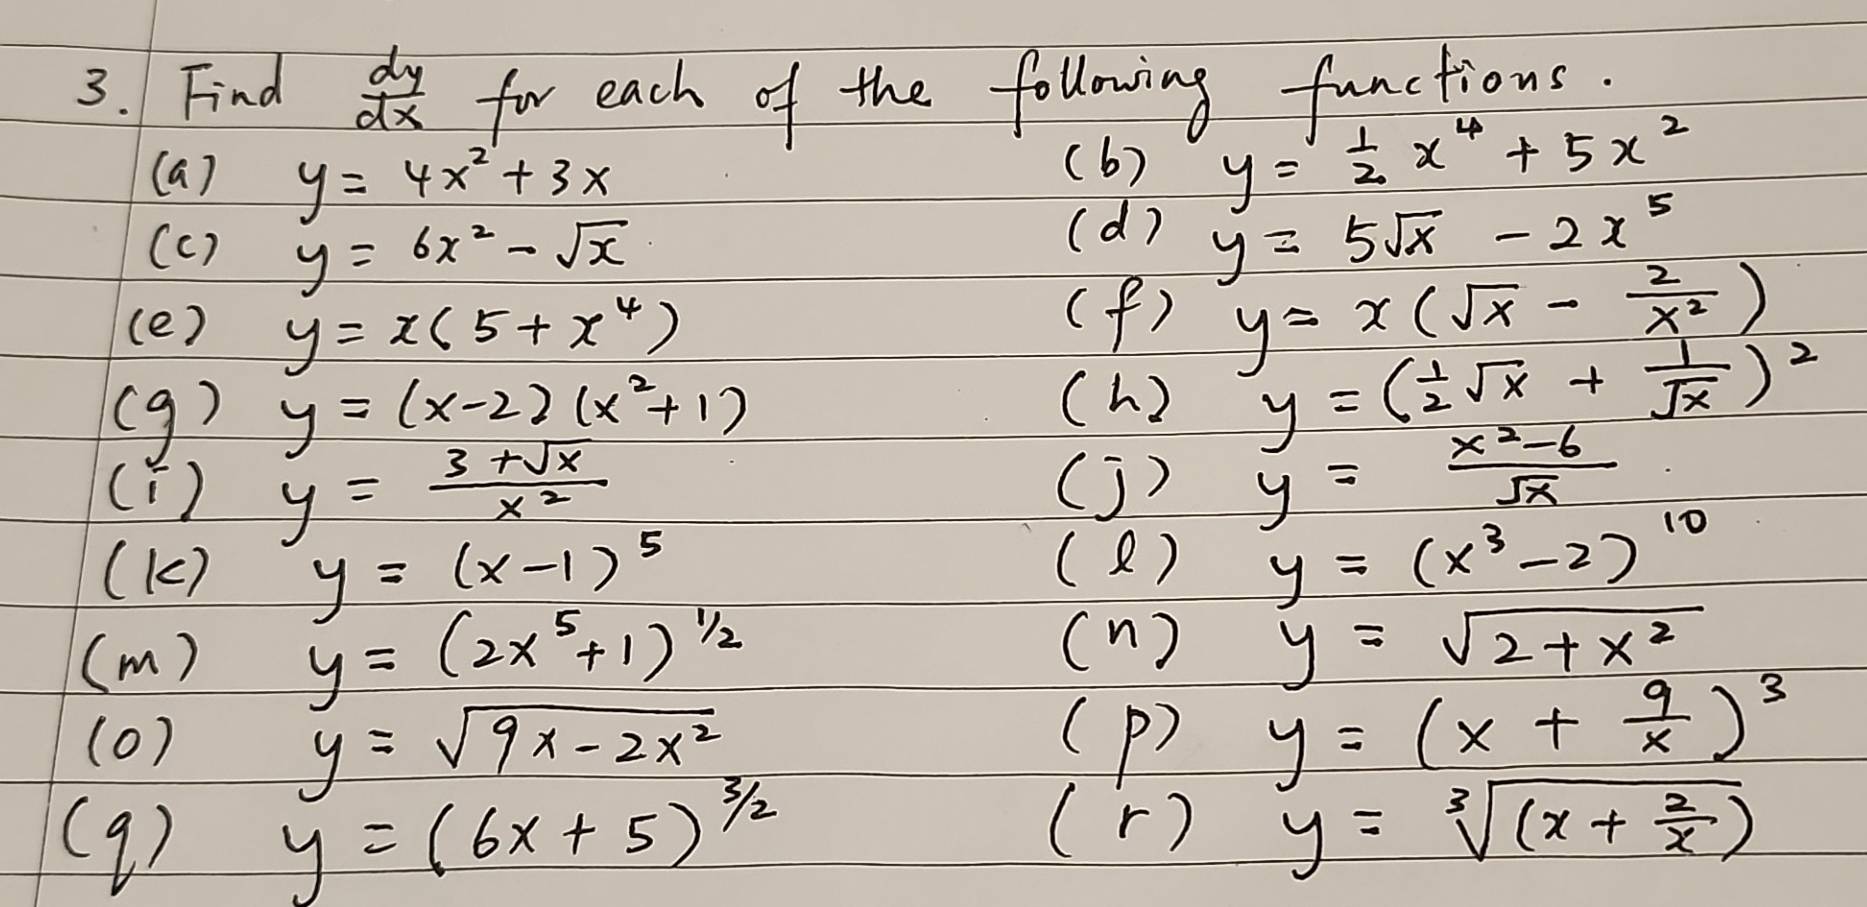 3. Find dy/dx for each of the following functions.
(a) y = 4x² + 3x (b) y = ½ x⁴ + 5x²
(c) y = 6x² - √x (d) y = 5√x - 2x⁵
(e) y = x(5 + x⁴) (f) y = x(√x - 2/x²)
(g) y = (x-2)(x²+1) (h) y = (½√x + 1/√x)²
(i) y = (3+√x)/x² (j) y = (x²-6)/√x
(k) y = (x-1)⁵ (l) y = (x³-2)¹⁰
(m) y = (2x⁵+1)^(1/2) (n) y = √(2+x²)
(o) y = √(9x-2x²) (p) y = (x + 9/x)³
(q) y = (6x+5)^(3/2) (r) y = ∛((x + 2/x))